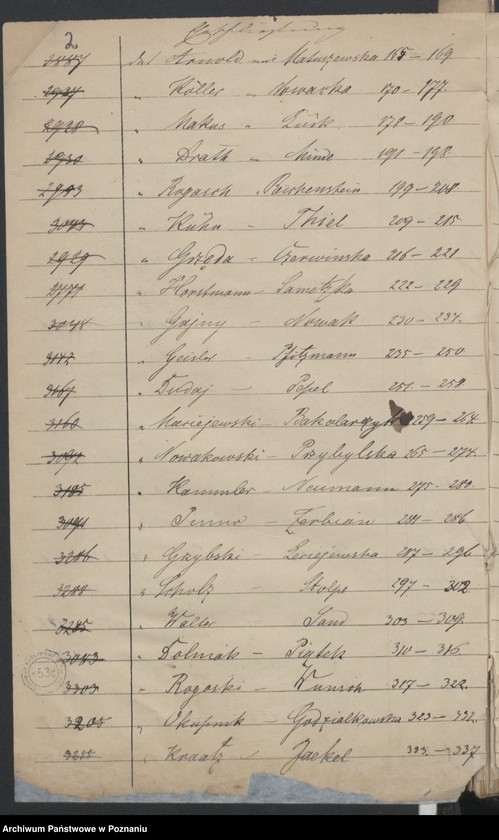 2
2927 Köller " Nowacka 170 – 177.
2928 " Makus " Lück 178 – 190
2930 " Drath " Minde 191 – 198
2993 " Rogasch Reichenstein 199 – 208
" Kühn – Thiel 209 – 215
2929 " Grzęda – Czerwinska 216 – 221
2771 " Horstmann – Sametzka 222 – 229
3048 " Gajny – Nowak 230 – 234.
3142 " Geisler – Pfitzmann 235 – 250
3161 " Dudaj – Pepel 251 – 258
3160 " Maciejewski – 259 – 264.
3192 " Nowakowski – Przybylska 265 – 274.
3195 " Hammler – Neumann 275 – 280
3091 " – Zerbian 281 – 286
3286 " Grzybski – 287 – 296
3288 " Scholz – Stolpe 297 – 302
3285 " Walter Sand 303 – 309.
3083 " Dolniak – Piątek 310 – 316
3303 " Rogoski – Wunsch 317 – 322.
3205 " Okupnik – Godzialkowska 323 – 332.
3255 " Kraatz – Jaekel 333. – 337
53
Archiwum Państwowe w Poznaniu